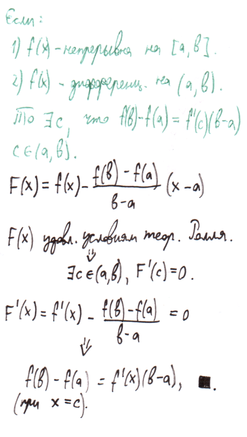 Если:
1) f(x) - непрерывна на [a, b].
2) f(x) - дифференц. на (a, b).
То ∃c, что f(b)-f(a) = f'(c)(b-a)
c∈(a, b).
F(x) = f(x) - \frac{f(b)-f(a)}{b-a} (x-a)
F(x) удовл. условиям теор. Ролля.
⇓
∃c∈(a,b), F'(c)=0.
F'(x) = f'(x) - \frac{f(b)-f(a)}{b-a} = 0
⇓
f(b)-f(a) = f'(x)(b-a), ■.
(при x=c).